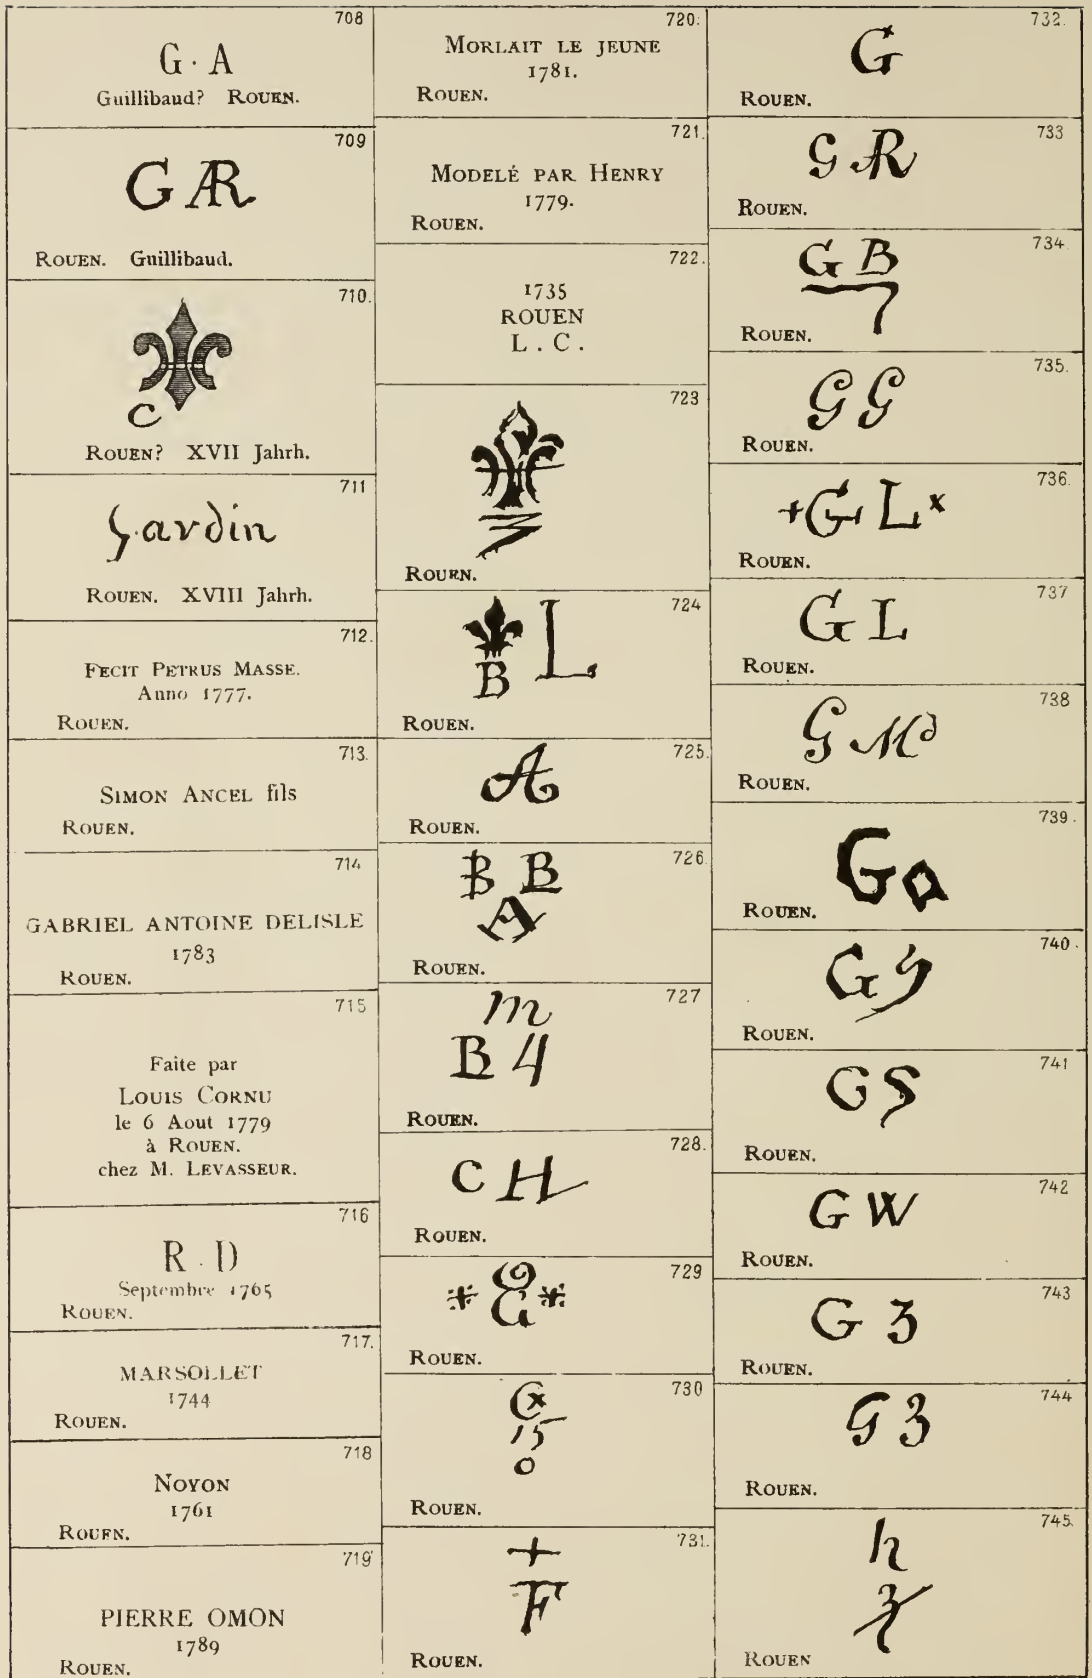 708
G · A
Guillibaud? ROUEN.
709
G Æ R
ROUEN. Guillibaud.
710.
C
ROUEN? XVII Jahrh.
711
Gardin
ROUEN. XVIII Jahrh.
712.
FECIT PETRUS MASSE.
Anno 1777.
ROUEN.
713.
SIMON ANCEL fils
ROUEN.
714
GABRIEL ANTOINE DELISLE
1783
ROUEN.
715
Faite par
LOUIS CORNU
le 6 Aout 1779
à ROUEN.
chez M. LEVASSEUR.
716
R . D
Septembre 1765
ROUEN.
717.
MARSOLLET
1744
ROUEN.
718
NOYON
1761
ROUEN.
719
PIERRE OMON
1789
ROUEN.
720.
MORLAIT LE JEUNE
1781.
ROUEN.
721.
MODELÉ PAR HENRY
1779.
ROUEN.
722.
1735
ROUEN
L . C .
723
ROUEN.
724
B L
ROUEN.
725.
A
ROUEN.
726.
B B
A
ROUEN.
727
m
B 4
ROUEN.
728.
C H
ROUEN.
729
ROUEN.
730
G x
15
0
ROUEN.
731.
+
F
ROUEN.
732.
G
ROUEN.
733
G R
ROUEN.
734.
G B
7
ROUEN.
735.
G G
ROUEN.
736.
+ G L x
ROUEN.
737
G L
ROUEN.
738
G Md
ROUEN.
739.
G a
ROUEN.
740.
G
ROUEN.
741
G S
ROUEN.
742
G W
ROUEN.
743
G 3
ROUEN.
744
G 3
ROUEN.
745.
h
3
ROUEN